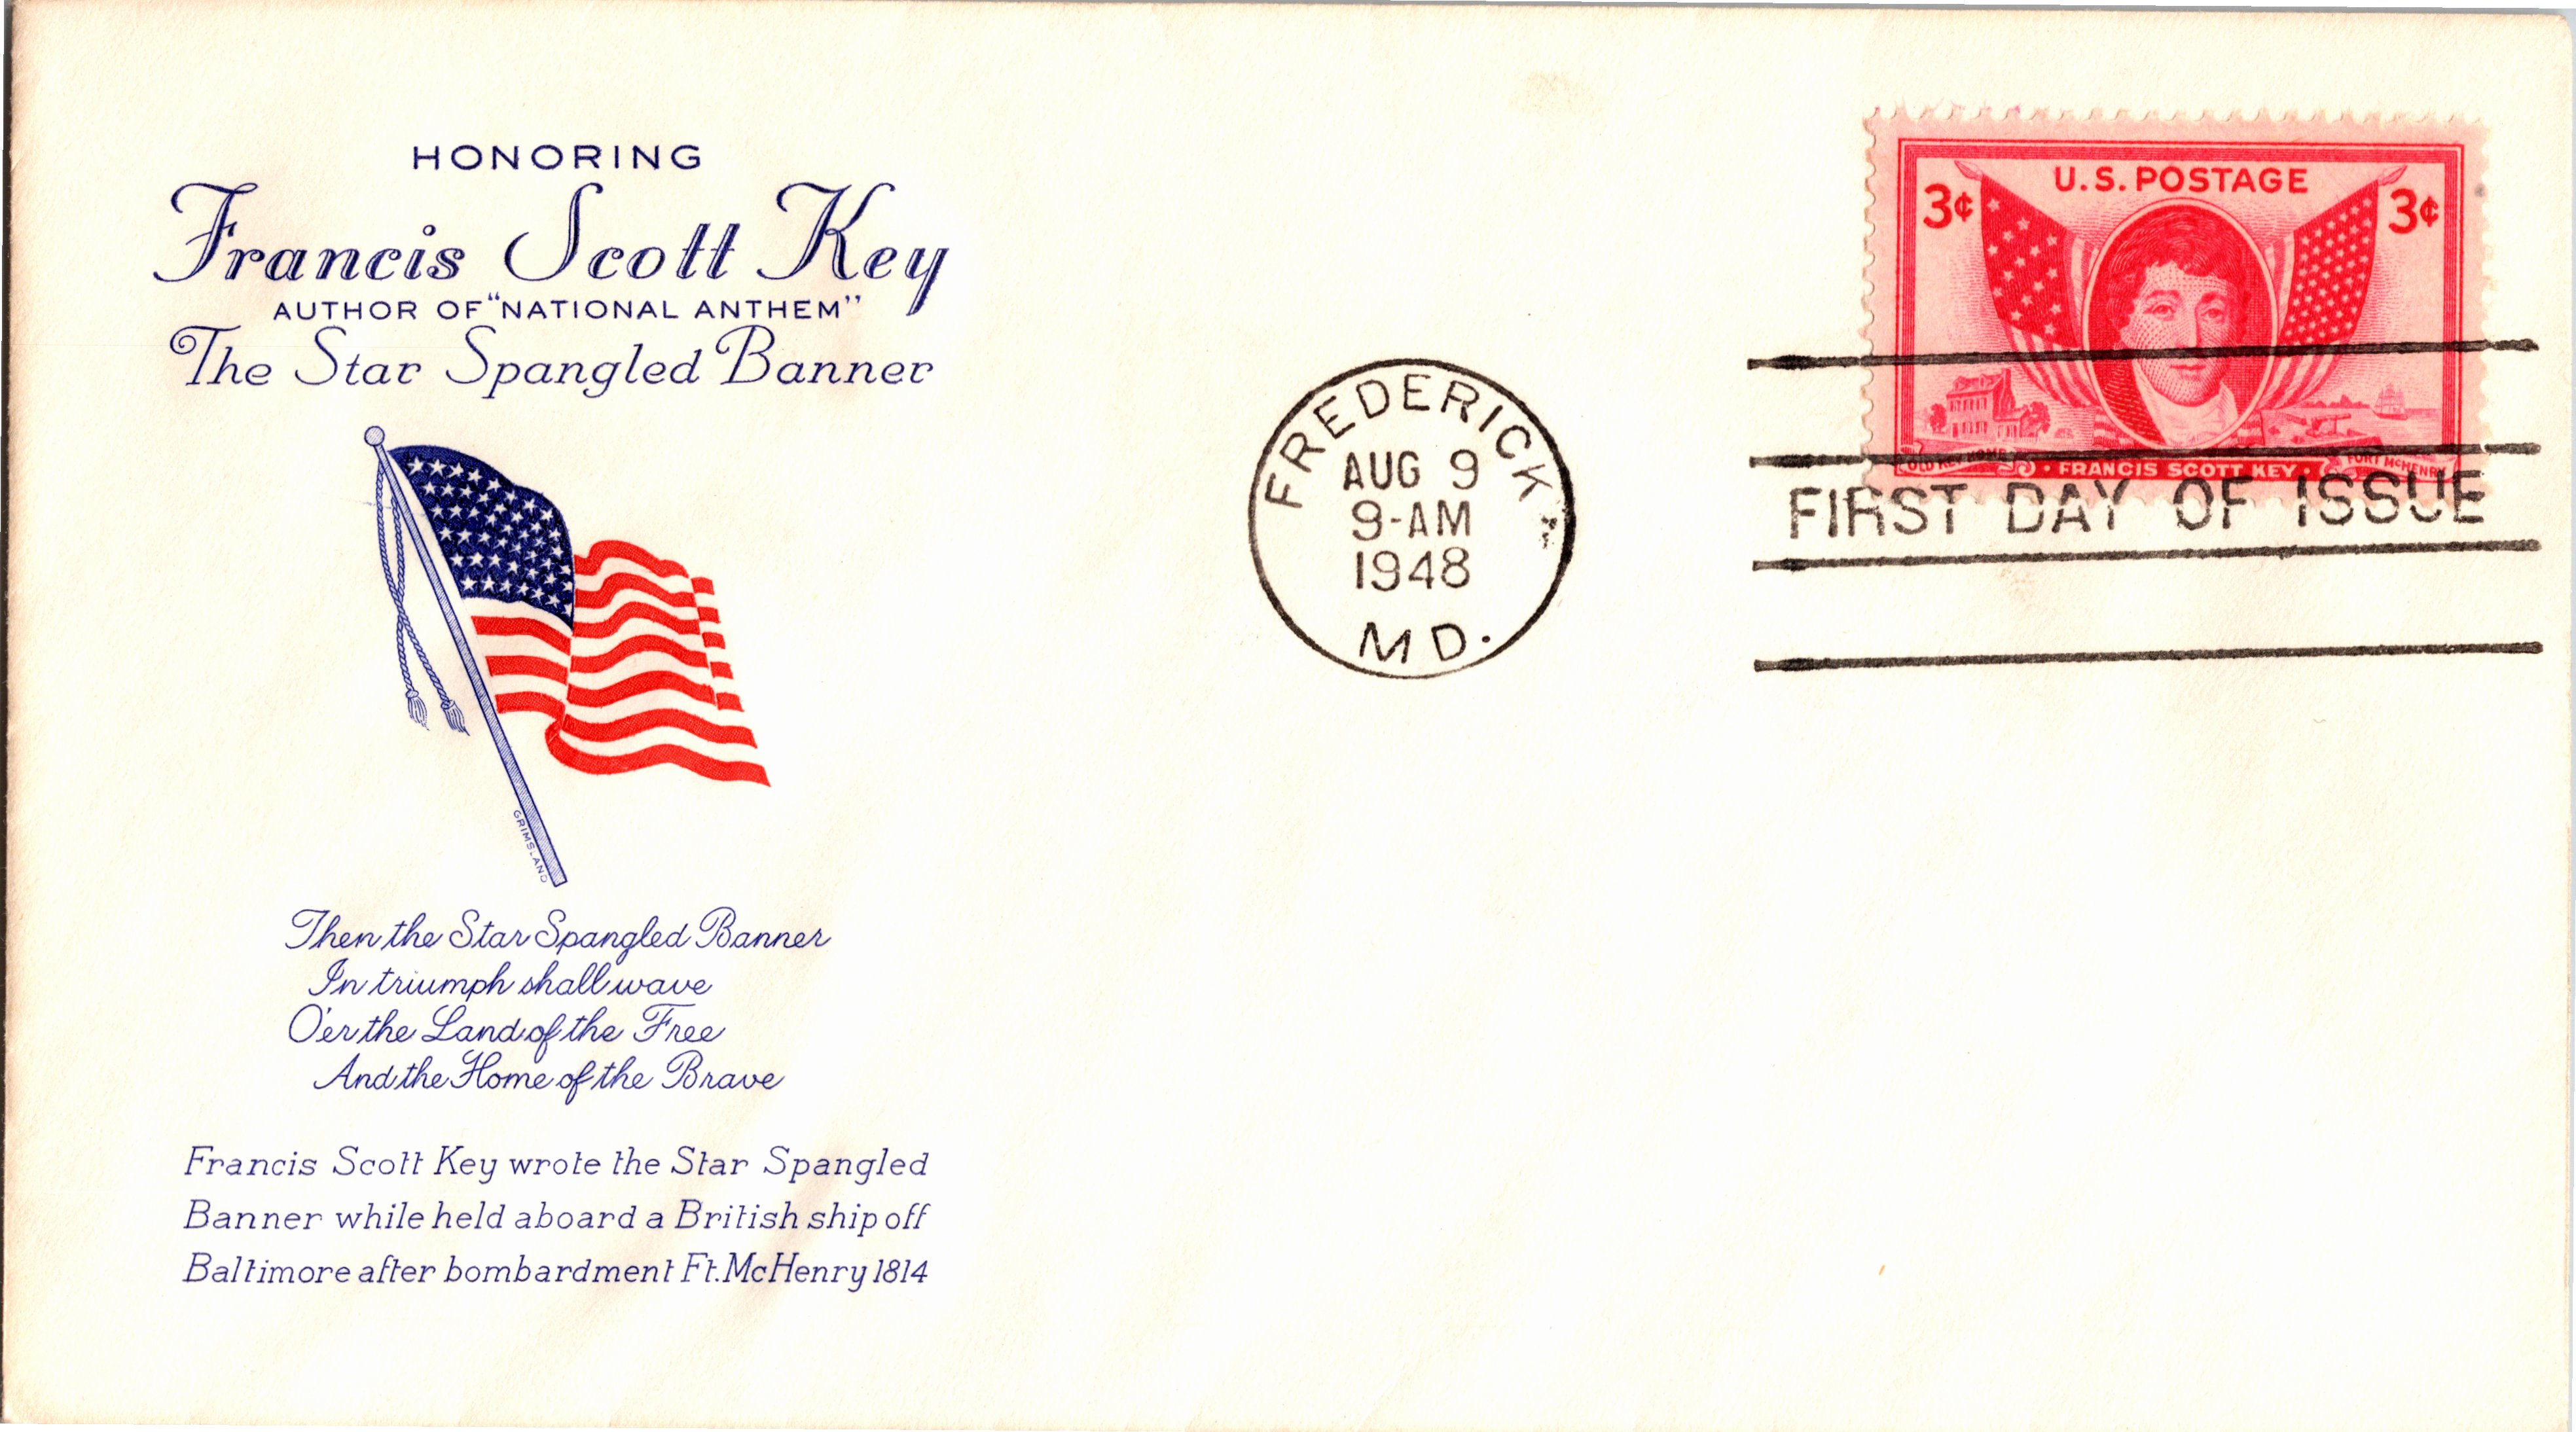 HONORING
Francis Scott Key
AUTHOR OF "NATIONAL ANTHEM"
The Star Spangled Banner
GRIMSLAND
Then the Star Spangled Banner
In triumph shall wave
O'er the Land of the Free
And the Home of the Brave
Francis Scott Key wrote the Star Spangled
Banner while held aboard a British ship off
Baltimore after bombardment Ft. McHenry 1814
FREDERICK
AUG 9
9-AM
1948
MD.
U.S. POSTAGE
3¢ 3¢
OLD KEY HOME · FRANCIS SCOTT KEY · FORT McHENRY
FIRST DAY OF ISSUE